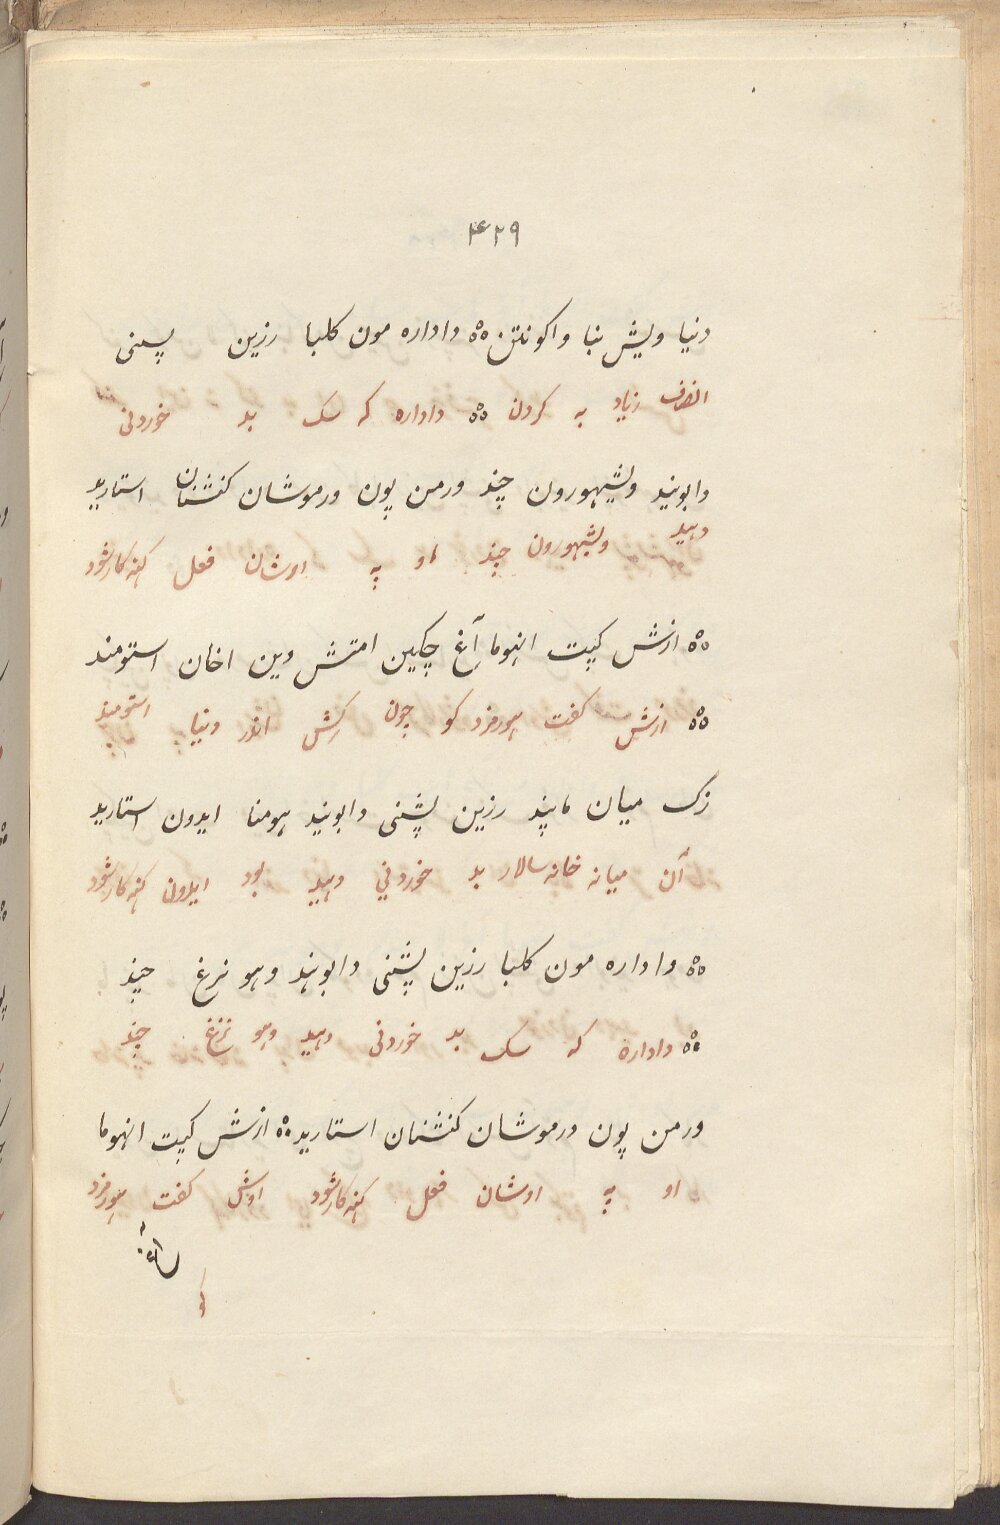 ۴۲۹
دنیا ویش بنا واکونتن ٥٥ داداره مون کلبا رزین پسنی
زیاد به کردن ٥٥ داداره که سک بد خوردنی
دابونید ولیشیهورون چند ورمن پون ورموشان کنشنان استارید
دهید ولیشیهورون چند او په اوشان فعل کنه کار شود
٥٥ ازش کپت انهوما آغ چکین امتش وین اخان استومند
٥٥ ازش کفت هورمزد کو چون رکش اندر دنیا استومند
زک میان مانپد رزین پشنی دابونید هومنا ایدون استارید
آن میانه خانه سالار بد خوردنی دهید بود ایدون کنه کار شود
٥٥ داداره مون کلبا رزین پشنی دابونید وهو نرغ چند
٥٥ داداره که سک بد خوردنی دهید وهو نرغ چند
ورمن پون ورموشان کنشنان استارید ٥٥ ازش کپت انهوما
او په اوشان فعل کنه کار شود اوش کفت هورمزد
کو